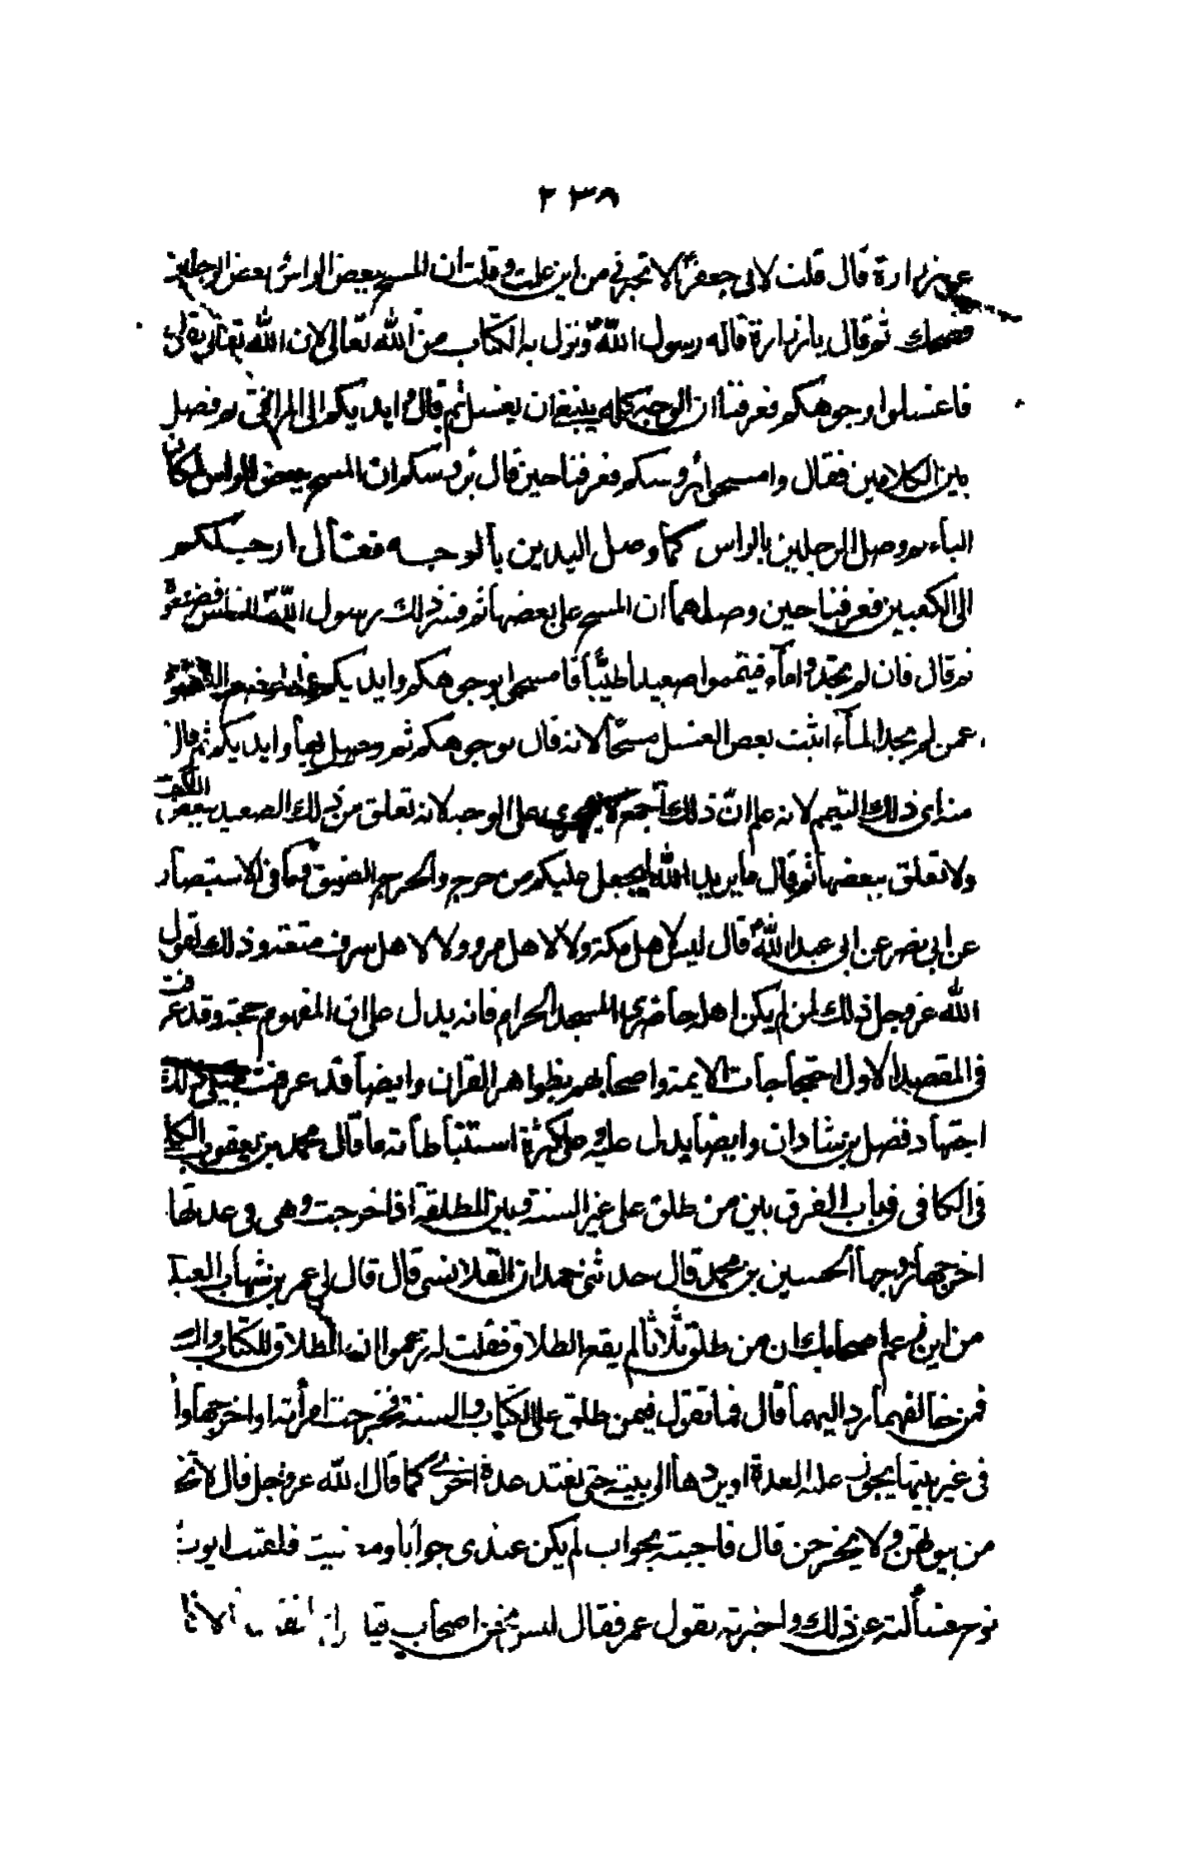 ٢٣٨
عن زرارة قال قلت لابى جعفر الا تخبرنى من اين علمت وقلت ان المسح ببعض الراس وبعض الرجلين
فضحك ثم قال يا زرارة قاله رسول الله ونزل به الكتاب من الله تعالى لان الله تعالى يقول
فاغسلوا وجوهكم فعرفنا ان الوجه كله ينبغى ان يغسل ثم قال وايديكم الى المرافق ثم فصل
بين الكلامين فقال وامسحوا برؤسكم فعرفنا حين قال برؤسكم ان المسح ببعض الراس لمكان
الباء ثم وصل الرجلين بالراس كما وصل اليدين بالوجه فقال ارجلكم
الى الكعبين فعرفنا حين وصلهما ان المسح على بعضها ثم فسر ذلك رسول الله للناس فضيعوه
ثم قال فان لم تجدوا ماء فتيمموا صعيدا طيبا فامسحوا بوجوهكم وايديكم
عمن لم يجد الماء اثبت بعض الغسل مسحا لانه قال بوجوهكم ثم وصل بها وايديكم ثم قال
منه اى ذلك التيمم لانه علم ان ذلك اجمع لا يجرى على الوجه لانه تعلق من ذلك الصعيد ببعض الكف
ولا تعلق ببعضها ثم قال ما يريد الله ليجعل عليكم من حرج والحرج الضيق وكما فى الاستبصار
عن ابى بصير عن ابى عبد الله قال ليس لاهل مكة ولا لاهل مرو ولا لاهل سرف متعة وذلك لقول
الله عز وجل ذلك لمن لم يكن اهله حاضرى المسجد الحرام فانه يدل على ان المفهوم حجة وقد عرفت
فى المقصد الاول احتجاجات الايمة واصحابهم بظواهر القران وايضا قد عرفت ذلك
اجتهاد فضل بن شاذان وايضا يدل عليه وعلى كثرة استنباطاته ما قال محمد بن يعقوب
فى الكافى فى باب الفرق بين من طلق على غير السنة وبين المطلقة اذا خرجت وهى فى عدتها
اخرجها زوجها الحسين بن محمد قال حدثنى حمدان القلانسى قال قال لى عمر بن شهاب العبد
من اين زعم اصحابك ان من طلق ثلاثا لم يقع الطلاق فقلت له زعموا ان الطلاق للكتاب والسنة
فمن خالفهما رد اليهما قال فما تقول فيمن طلق على الكتاب والسنة فخرجت امرأته او اخرجها
فى غير بيتها يجوز عليه العدة او يردها الى بيته حتى تعتد عدة اخرى كما قال الله عز وجل قال لا
من بيوتهن ولا يخرجن قال فاجبته بجواب لم يكن عندى جوابا ومضيت فلقيت ايوب
نوح فسألته عن ذلك واخبرته بقول عمر فقال ليس نحن اصحاب